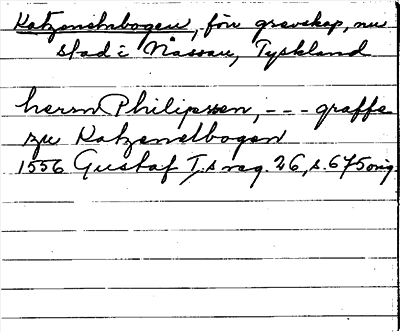 Katzenelnbogen, förr grevskap, nu
stad i Nassau, Tyskland
herrn Philipssen, --- graffe
zu Katzenelbogen
1556 Gustaf I:s reg. 26, s. 675 orig.